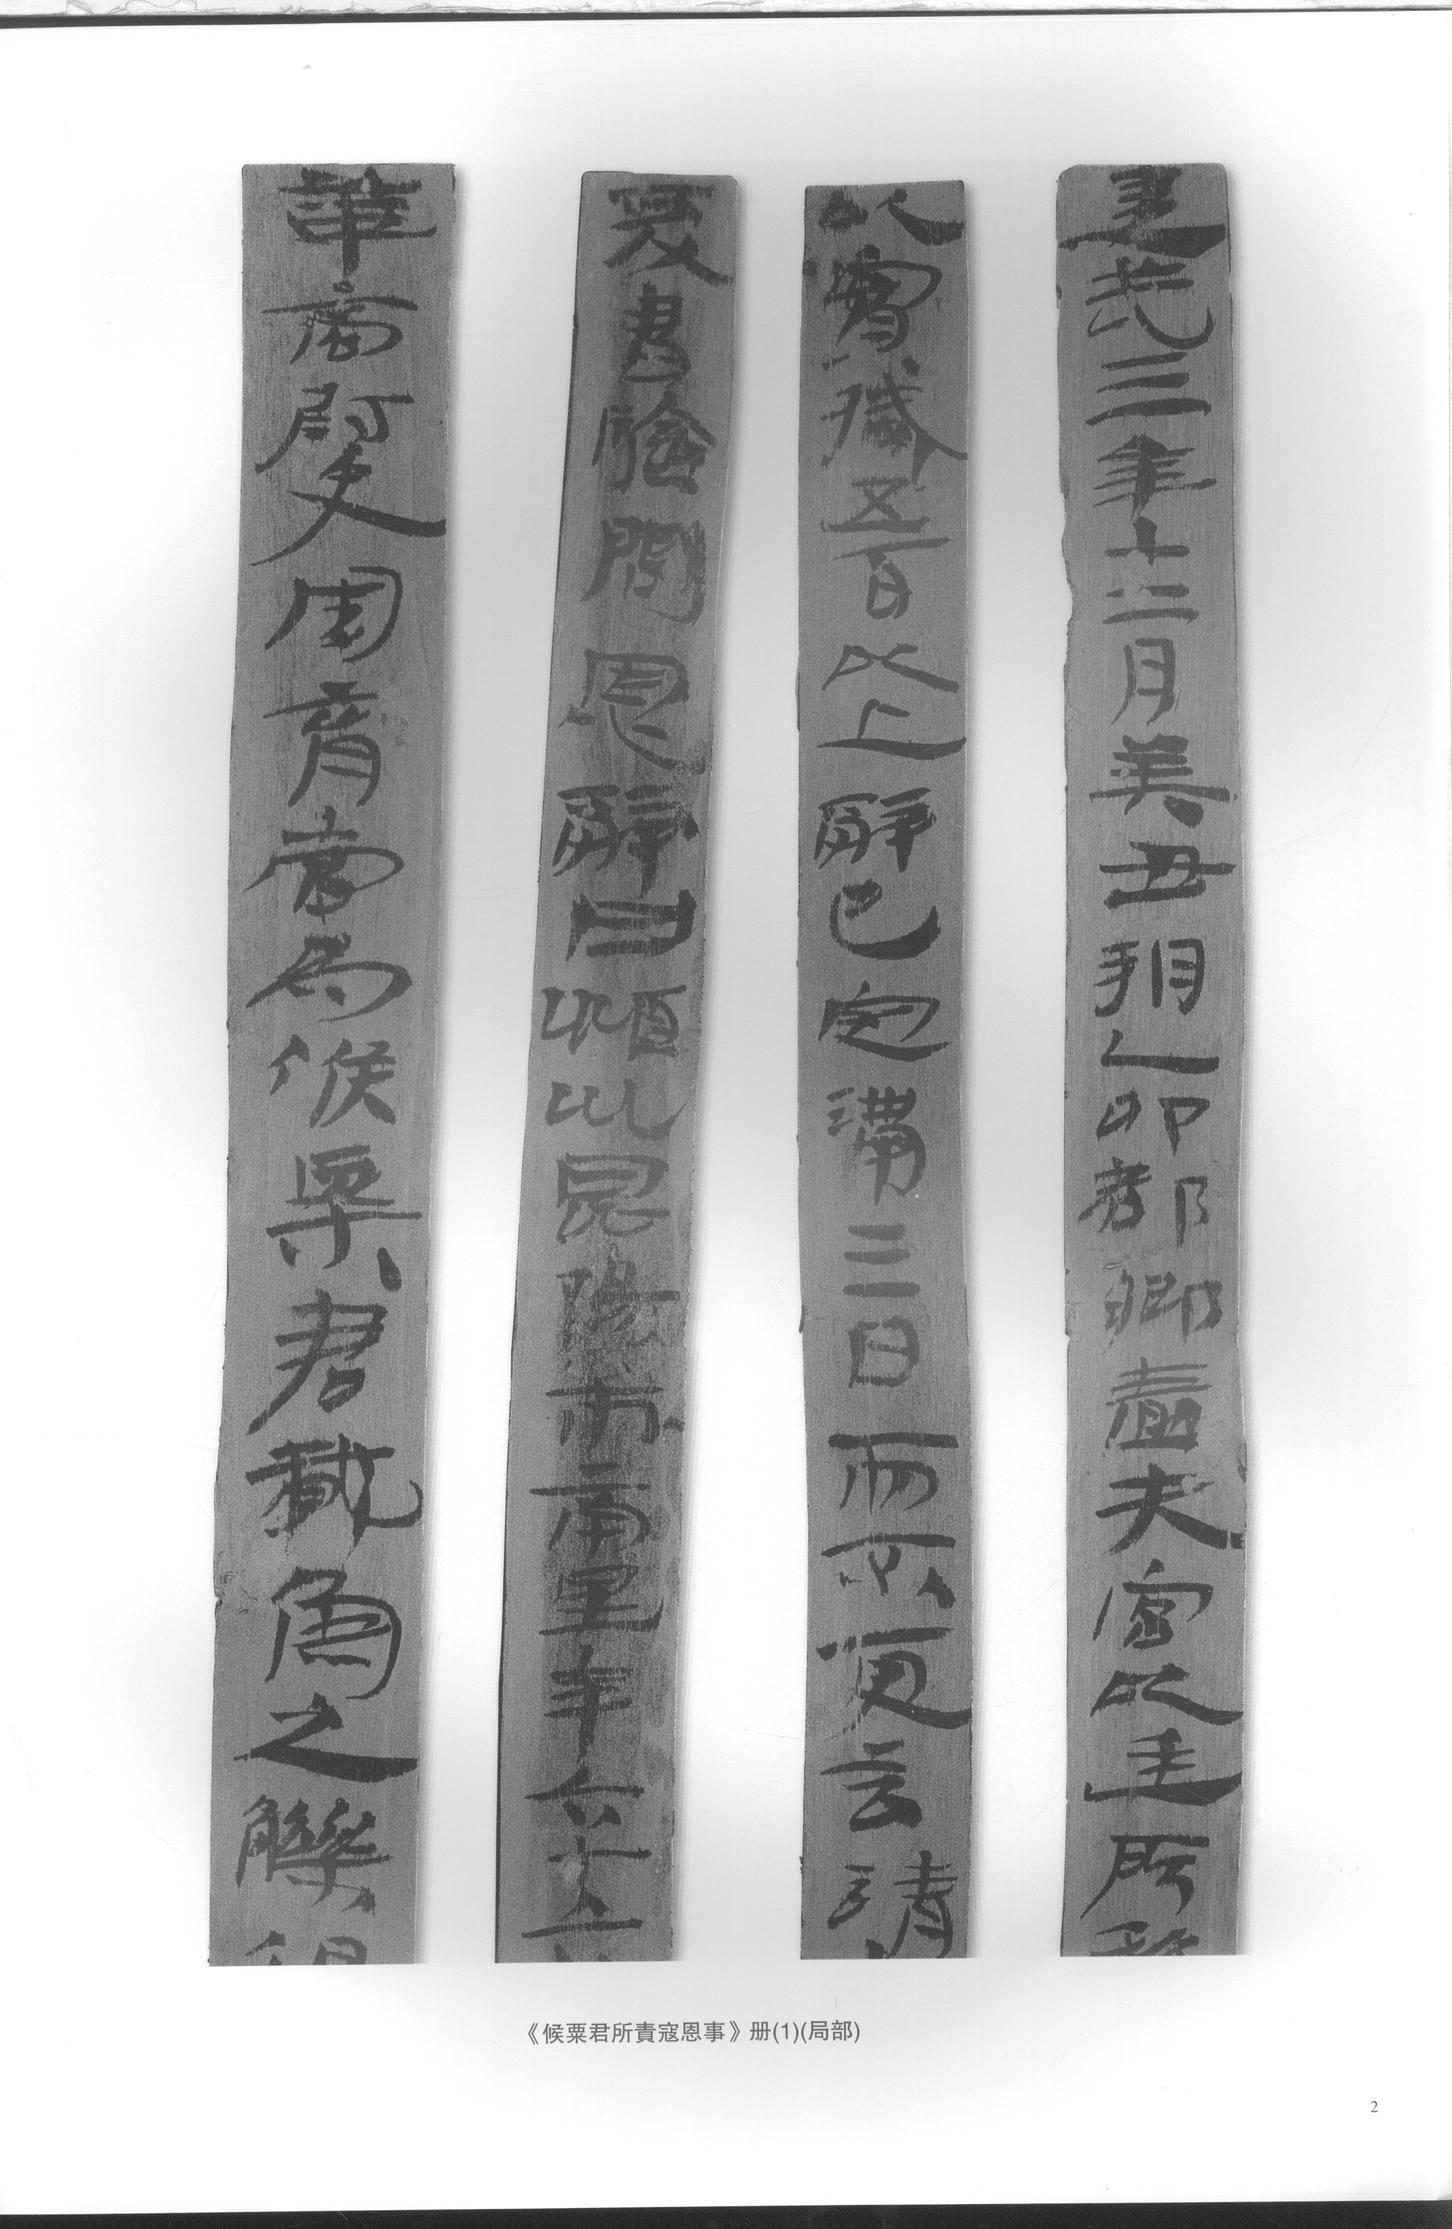 建武三年十二月癸丑朔乙卯都鄉嗇夫宮以廷所移
以實臧五百以上辤已定滿三日而不更言請
爰書驗問恩辤曰潁川昆陽市南里年六十六
華商尉史周育當為候粟君載魚之觻得
《候粟君所責寇恩事》册(1)(局部)
2